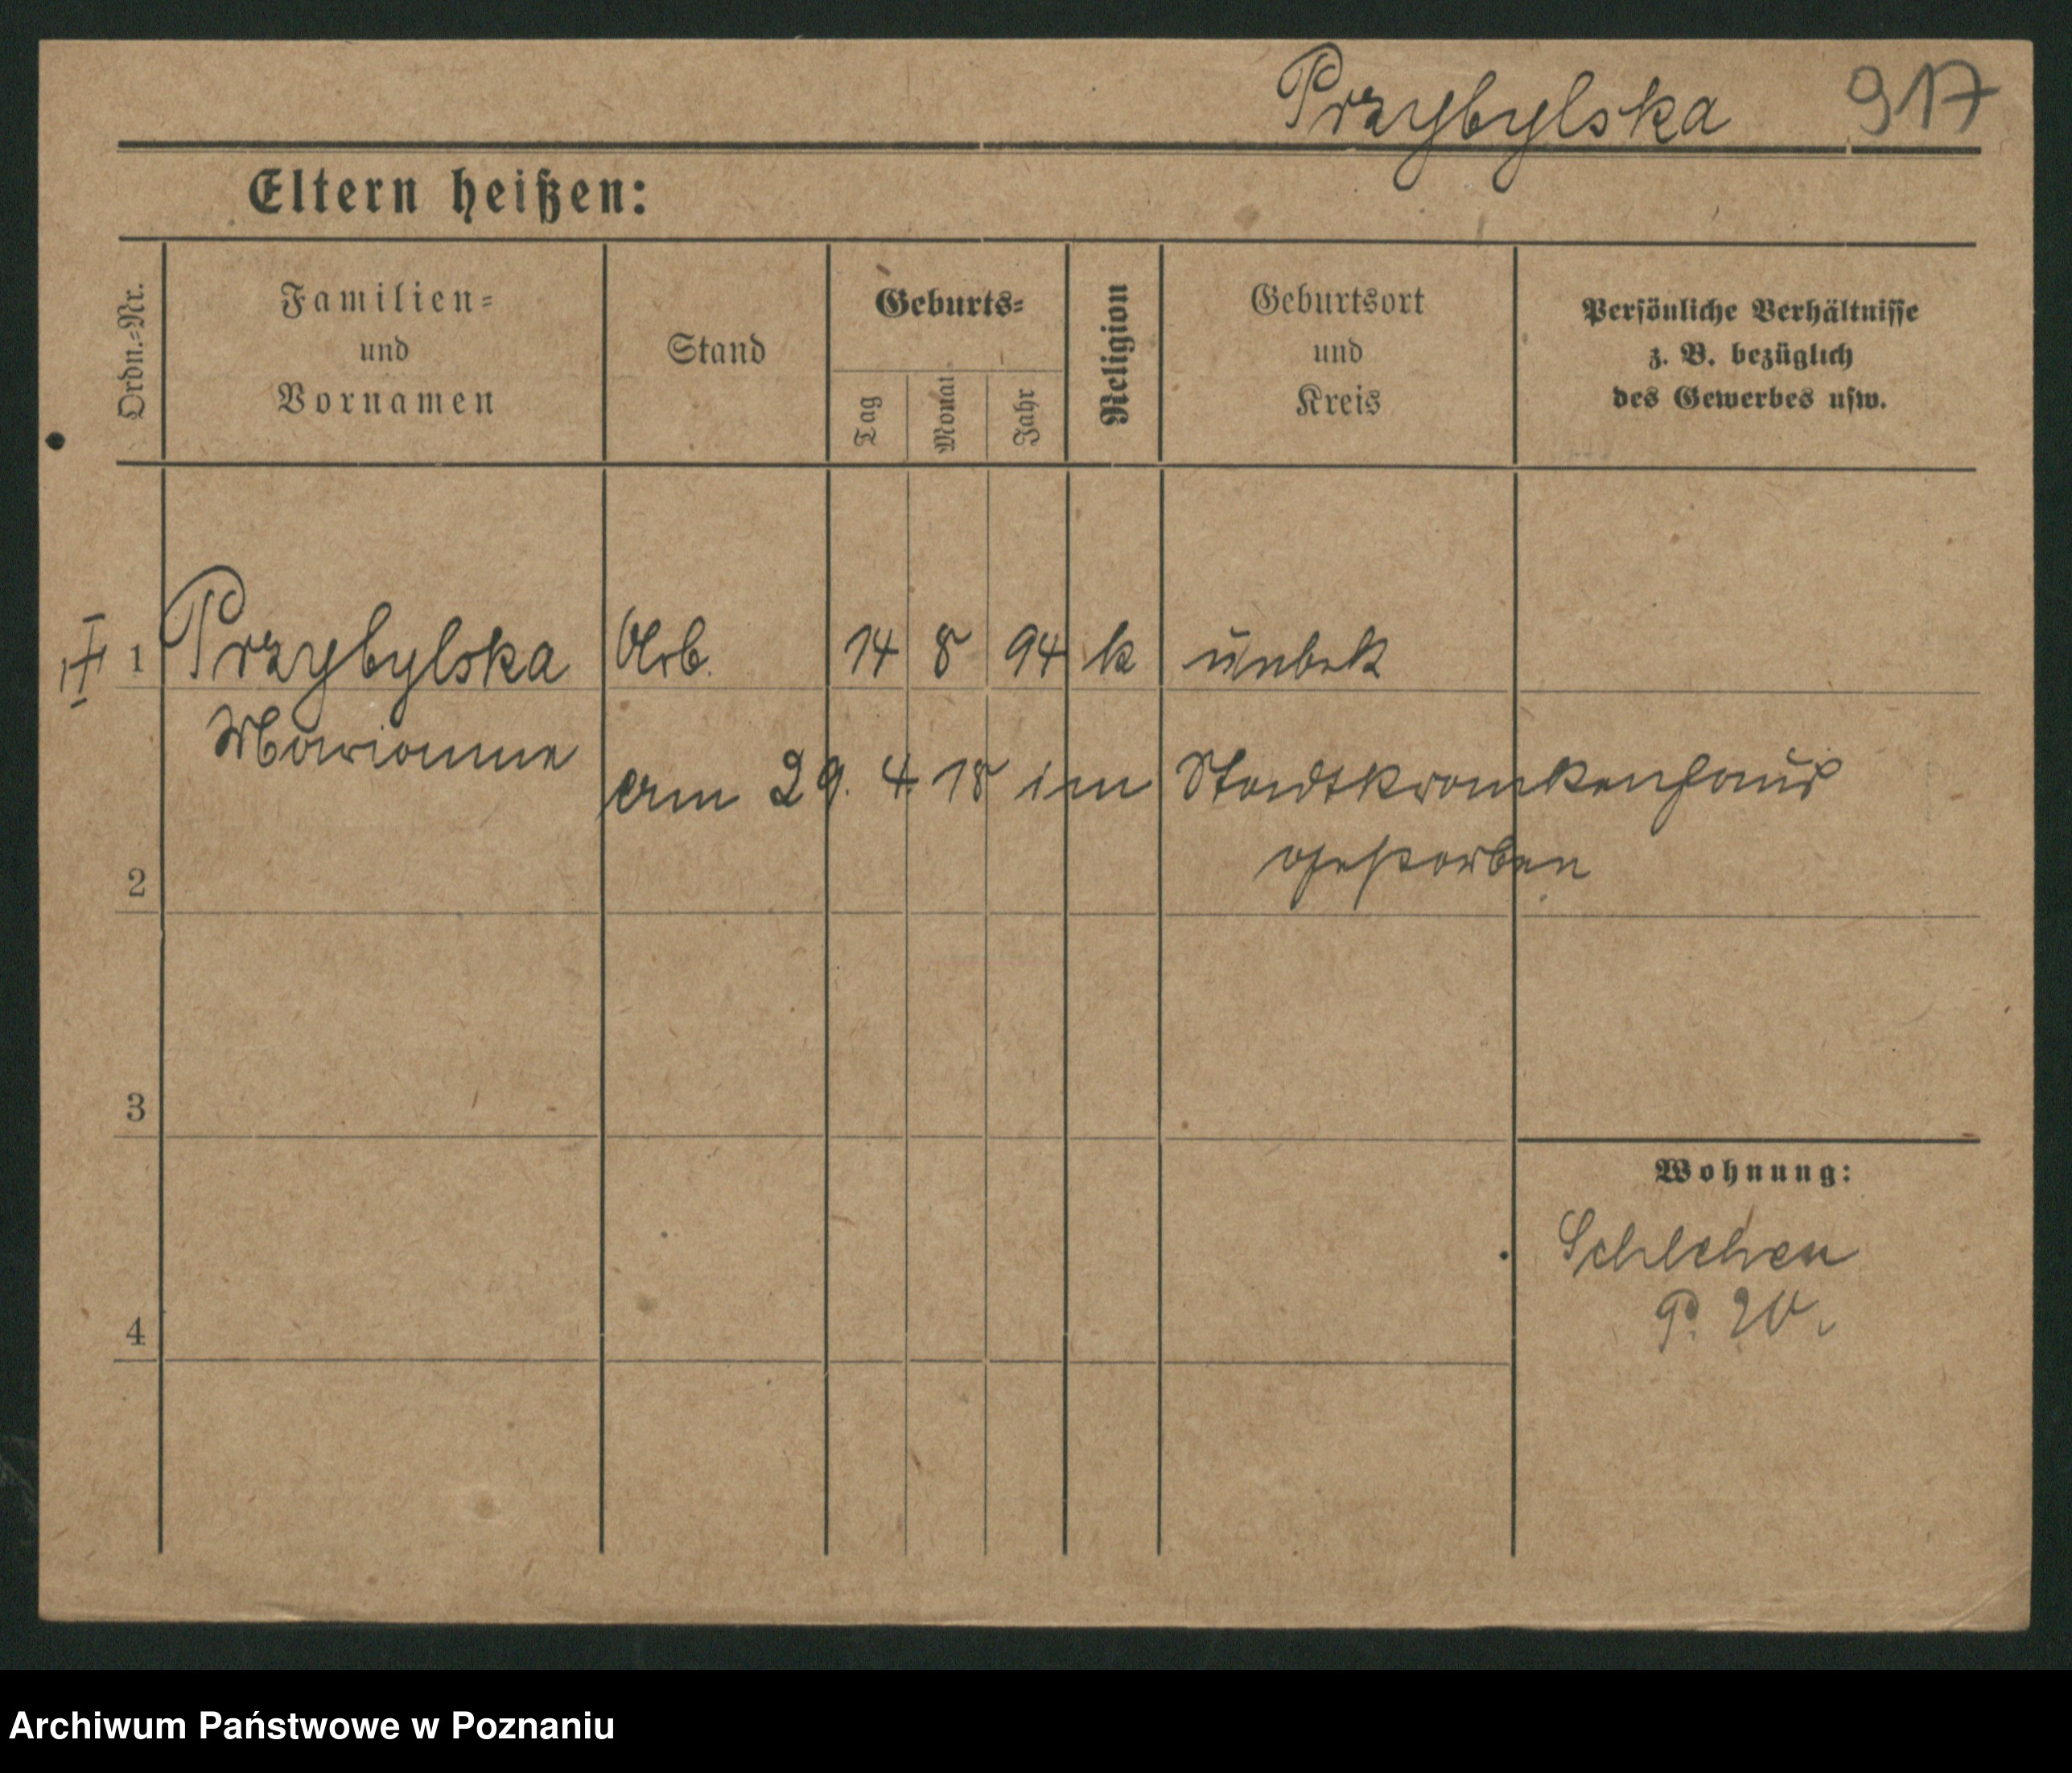 Przybylska 917
Eltern heißen:
Ordn.=Nr.
Familien=
und
Vornamen
Stand
Geburts=
Tag
Monat
Jahr
Religion
Geburtsort
und
Kreis
Persönliche Verhältnisse
z. B. bezüglich
des Gewerbes usw.
1 Przybylska Arb. 14 8 94 k unbek
Marianne
am 29. 4 18 im Stadtkrankenhaus
gestorben
2
3
Wohnung:
4
Archiwum Państwowe w Poznaniu